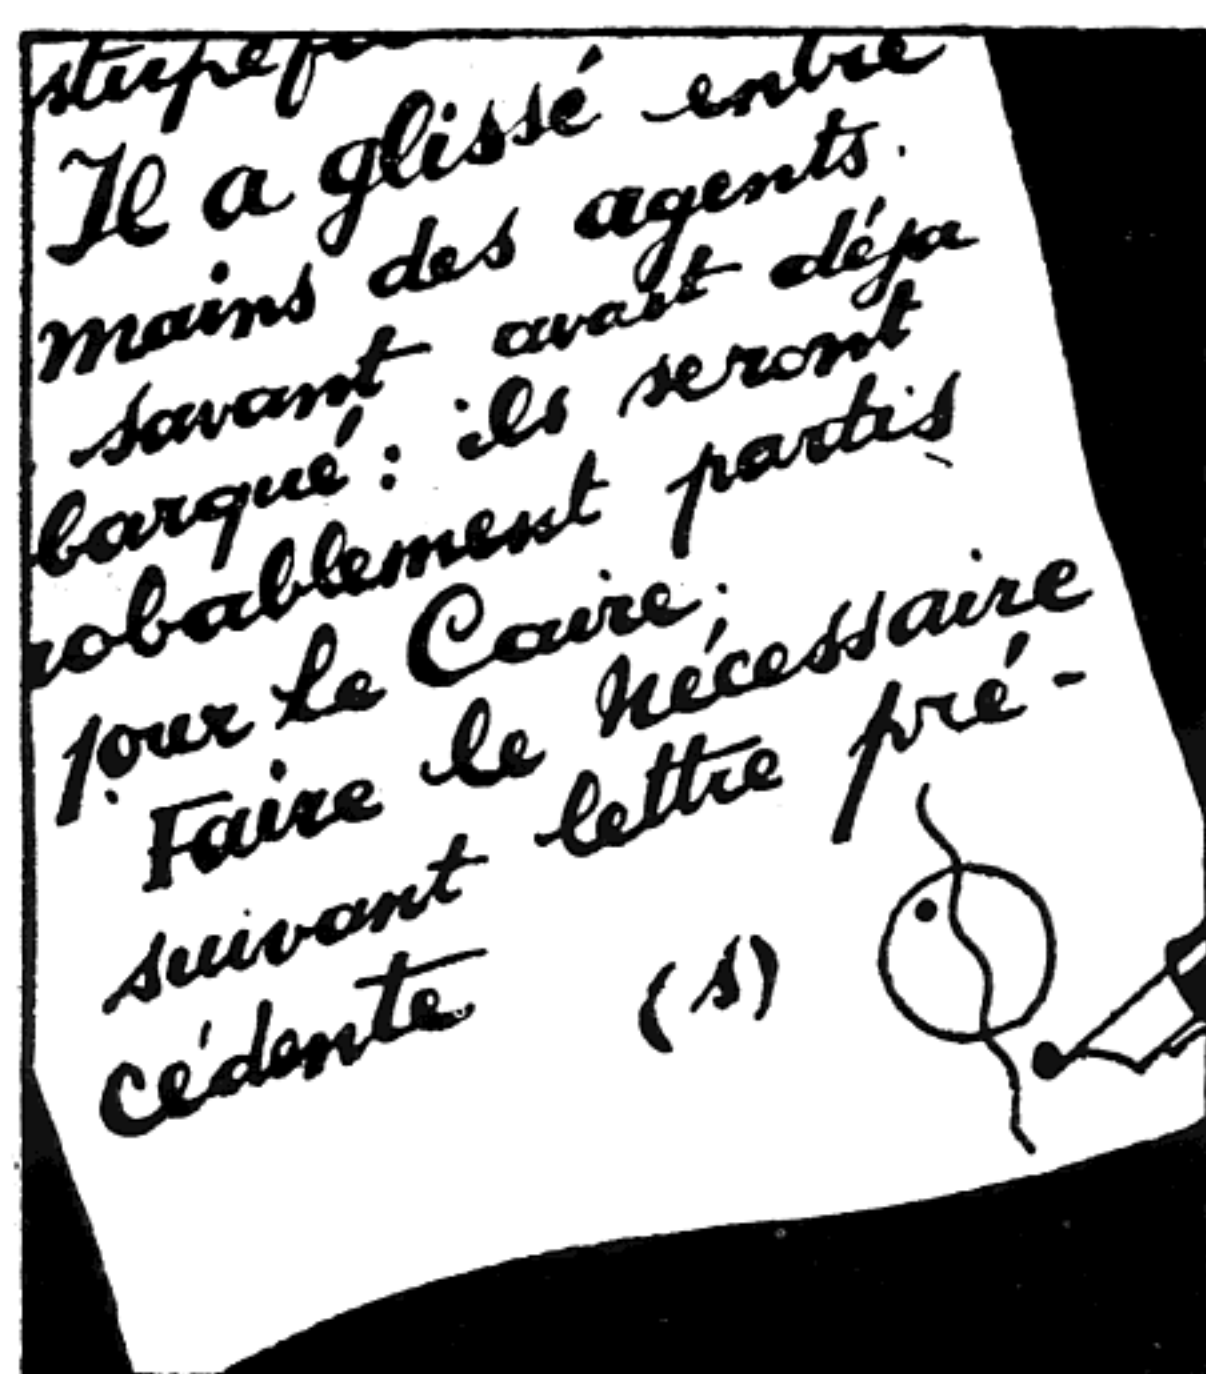 stupéfi
Il a glissé entre
mains des agents.
savant avait déja
barqué : ils seront
robablement partis
pour le Caire.
Faire le nécessaire
suivant lettre pré-
cédente (s)